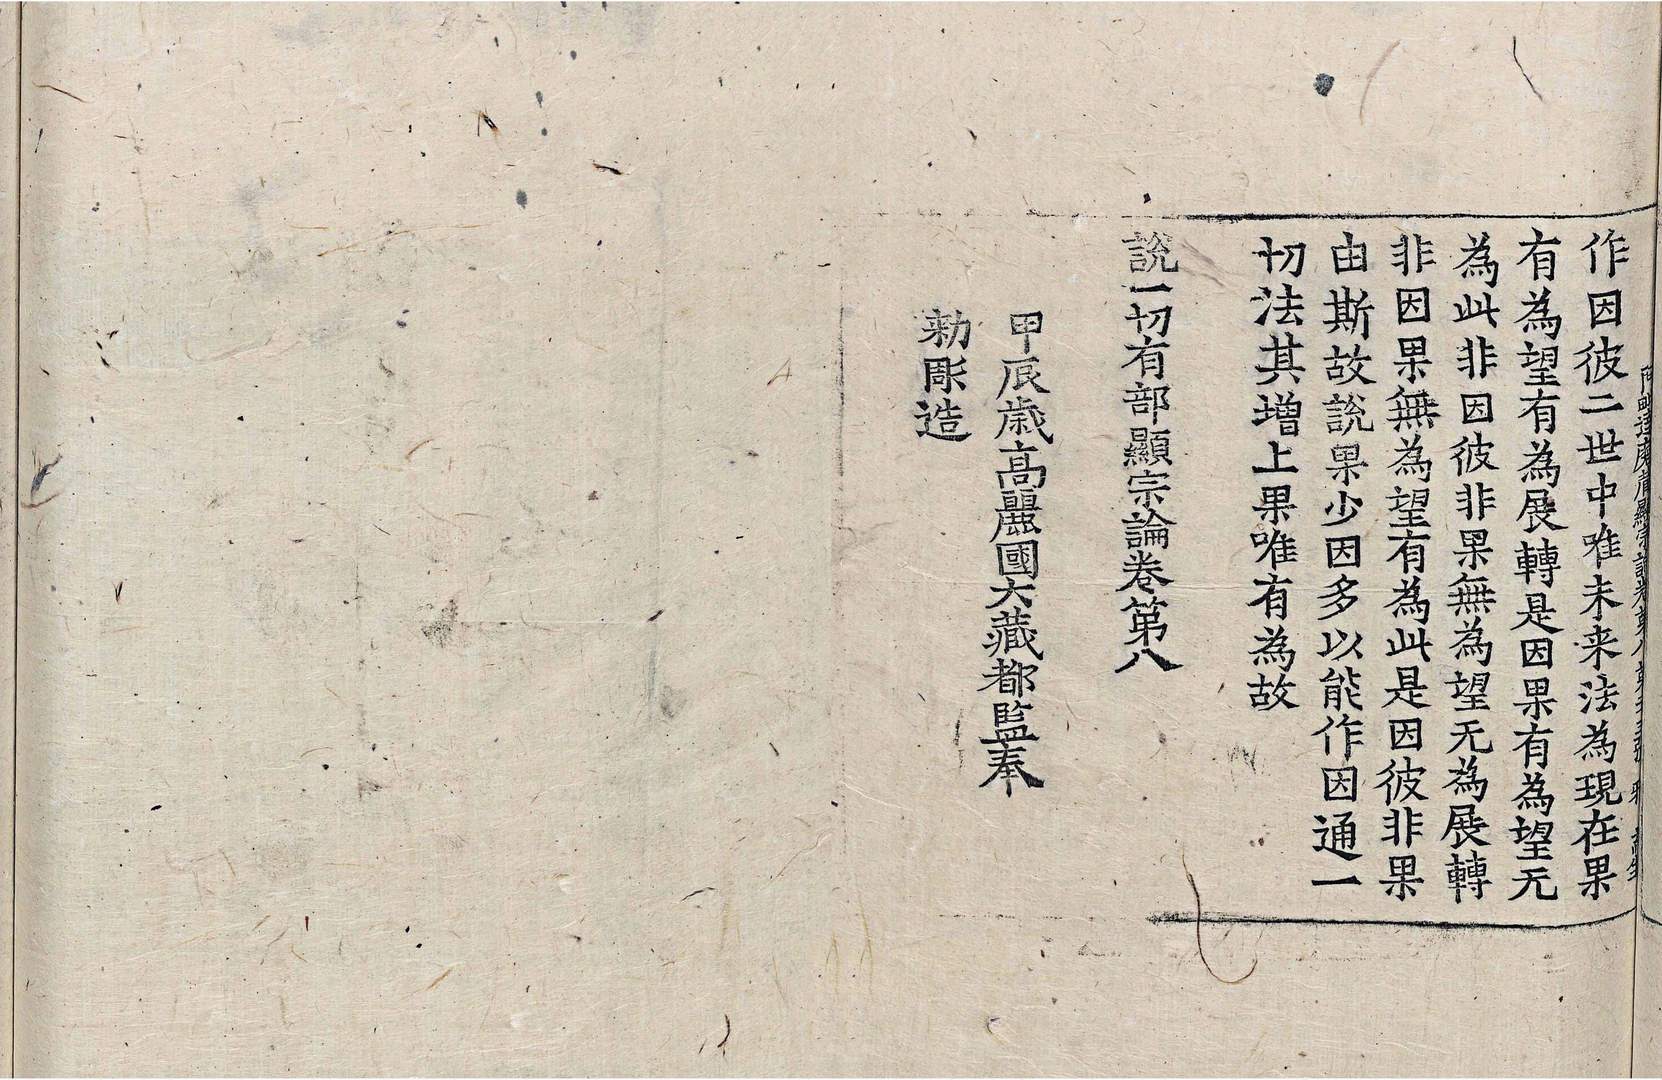 作因彼二世中唯未来法為現在果
有為望有為展轉是因果有為望无
為此非因彼非果無為望无為展轉
非因果無為望有為此是因彼非果
由斯故說果少因多以能作因通一
切法其增上果唯有為故
說一切有部顯宗論卷第八
甲辰歲高麗國大藏都監奉
勅彫造